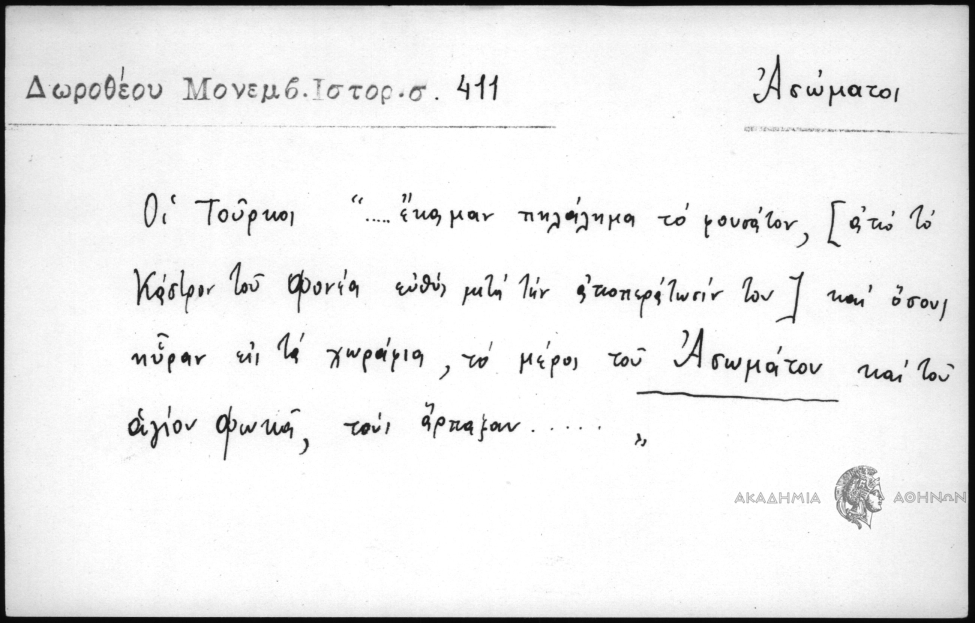 Δωροθέου Μονεμβ. Ιστορ. σ. 411
Ἀσώματοι
Οἱ Τοῦρκοι "..... ἔκαμαν πηλάλημα τό φουσάτον, [ἀπό τό
Κάστρον τοῦ Φονέα εὐθύς μετά τήν ἀποπεράτωσίν του] καί ὅσους
ηὗραν εἰς τά χωράφια, τό μέρος τοῦ Ἀσωμάτου καί τοῦ
ἁγίου Φωκᾶ, τούς ἅρπαξαν ...... "
ΑΚΑΔΗΜΙΑ ΑΘΗΝΩΝ